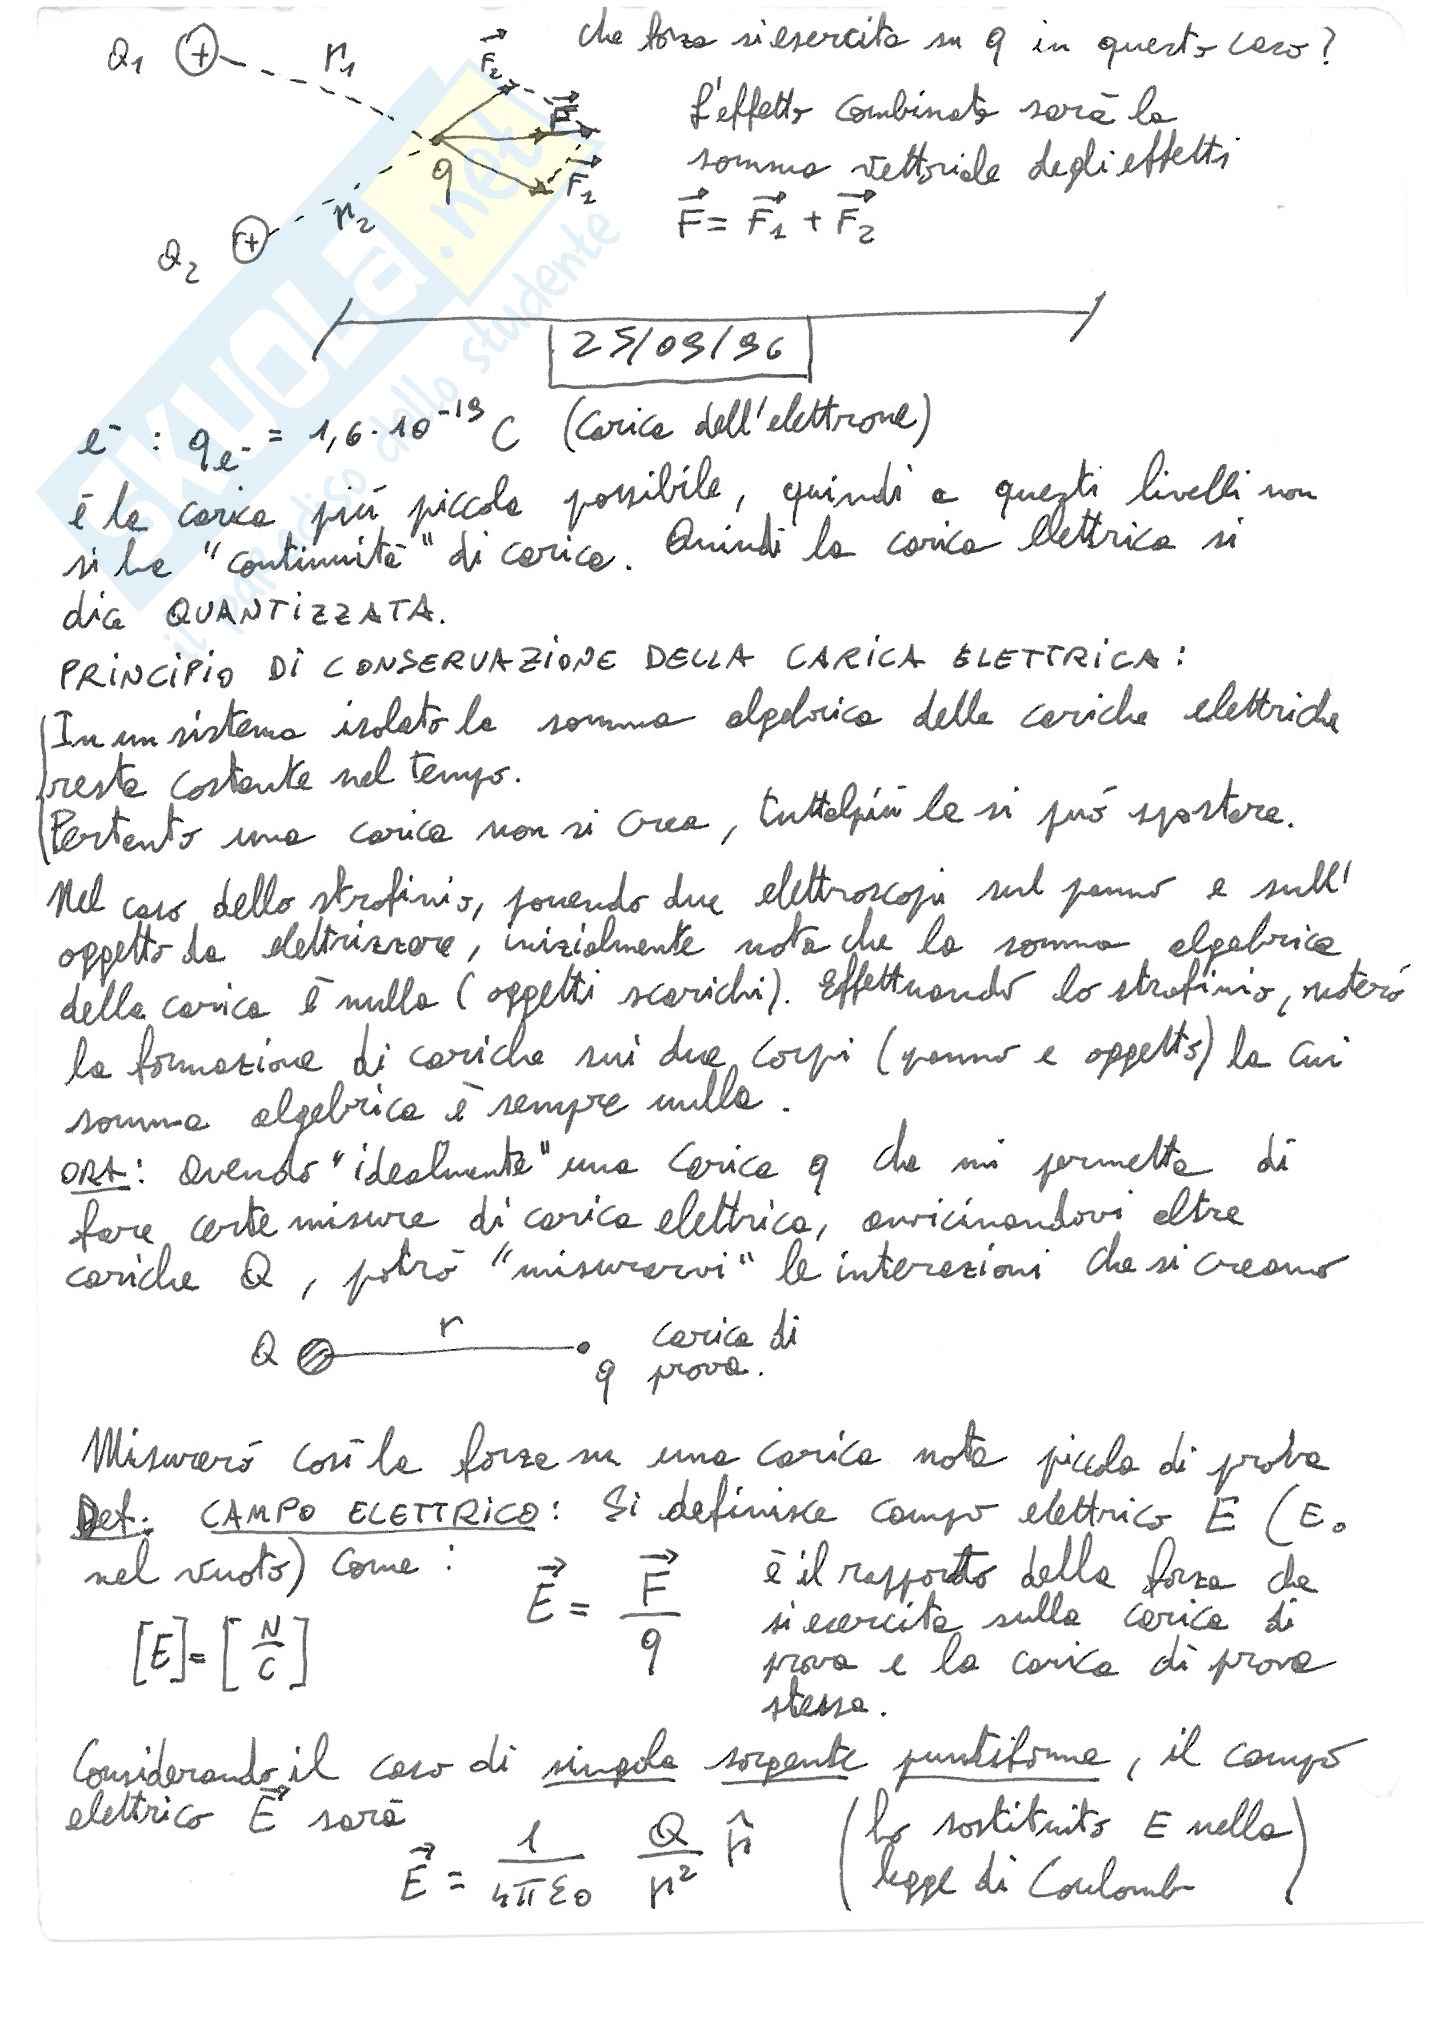 Q1 + r1 F2 F che forza si esercita su q in questo caso?
L'effetto combinato sarà la
q F1 somma vettoriale degli effetti
r2 F = F1 + F2
Q2 +
SKUOLA.net
il paradiso dello studente
25/09/96
e⁻ : q e⁻ = 1,6·10⁻¹⁹ C (carica dell'elettrone)
è la carica più piccola possibile, quindi a questi livelli non
si ha "continuità" di carica. Quindi la carica elettrica si
dice QUANTIZZATA.
PRINCIPIO DI CONSERVAZIONE DELLA CARICA ELETTRICA:
In un sistema isolato la somma algebrica delle cariche elettriche
resta costante nel tempo.
Pertanto una carica non si crea, tuttalpiù la si può spostare.
Nel caso dello strofinio, ponendo due elettroscopi sul panno e sull'
oggetto da elettrizzare, inizialmente nota che la somma algebrica
della carica è nulla (oggetti scarichi). Effettuando lo strofinio, noterò
la formazione di cariche sui due corpi (panno e oggetto) la cui
somma algebrica è sempre nulla.
ORA: avendo "idealmente" una carica q che mi permetta di
fare certe misure di carica elettrica, avvicinandovi altre
cariche Q, potrò "misurarvi" le interazioni che si creano
Q r q carica di
prova.
Misurerò così la forza su una carica nota piccola di prova
Def. CAMPO ELETTRICO: Si definisce campo elettrico E (E₀
nel vuoto) come : E = F/q è il rapporto della forza che
si esercita sulla carica di
[E]=[N/C] prova e la carica di prova
stessa.
Considerando il caso di singola sorgente puntiforme, il campo
elettrico E sarà
E = 1/4πε0 Q/r² r̂ (ho sostituito E nella
legge di Coulomb)